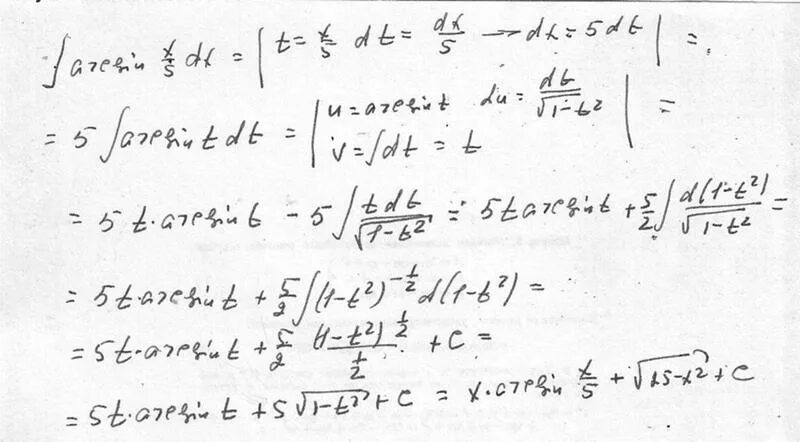 ∫ arcsin x/5 dx = | t = x/5 dt = dx/5 → dx = 5dt | =
= 5 ∫ arcsin t dt = | u = arcsin t du = dt/√(1-t²) v = ∫dt = t | =
= 5 t · arcsin t - 5 ∫ t dt/√(1-t²) = 5t arcsin t + 5/2 ∫ d(1-t²)/√(1-t²) =
= 5t · arcsin t + 5/2 ∫ (1-t²)^(-1/2) d(1-t²) =
= 5t · arcsin t + 5/2 (1-t²)^(1/2)/(1/2) + C =
= 5t · arcsin t + 5 √(1-t²) + C = x · arcsin x/5 + √(25-x²) + C